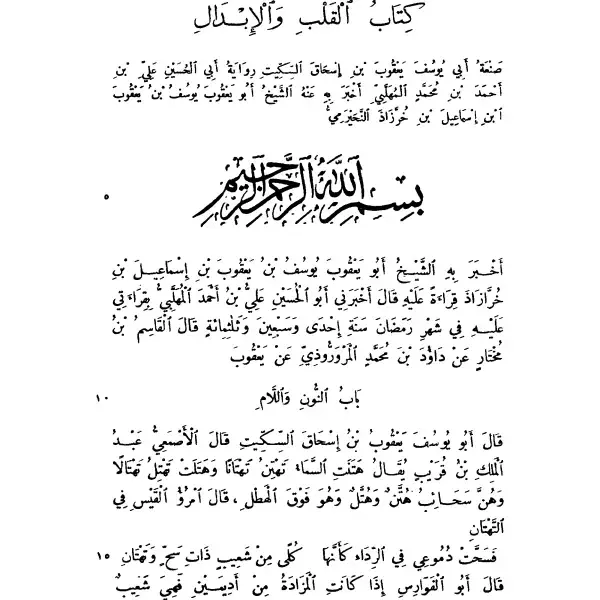 كِتَابُ ٱلْقَلْبِ وَٱلْإِبْدَالِ
صَنْعَةُ أَبِي يُوسُفَ يَعْقُوبَ بْنِ إِسْحَاقَ ٱلسِّكِّيتِ رِوَايَةُ أَبِي ٱلْحُسَيْنِ عَلِيِّ بْنِ
أَحْمَدَ بْنِ مُحَمَّدٍ ٱلْمُهَلَّبِيِّ أَخْبَرَ بِهِ عَنْهُ ٱلشَّيْخُ أَبُو يَعْقُوبَ يُوسُفُ بْنُ يَعْقُوبَ
ٱبْنِ إِسْمَاعِيلَ بْنِ خُرَّزَاذَ ٱلنَّجَيْرَمِيُّ
بِسْمِ ٱللّٰهِ ٱلرَّحْمٰنِ ٱلرَّحِيمِ
٥
أَخْبَرَ بِهِ ٱلشَّيْخُ أَبُو يَعْقُوبَ يُوسُفُ بْنُ يَعْقُوبَ بْنِ إِسْمَاعِيلَ بْنِ
خُرَّازَاذَ قِرَاءَةً عَلَيْهِ قَالَ أَخْبَرَنِي أَبُو ٱلْحُسَيْنِ عَلِيُّ بْنُ أَحْمَدَ ٱلْمُهَلَّبِيُّ بِقِرَاءَتِي
عَلَيْهِ فِي شَهْرِ رَمَضَانَ سَنَةِ إِحْدَى وَسَبْعِينَ وَثَلٰثِمِائَةٍ قَالَ ٱلْقَاسِمُ بْنُ
مُخْتَارٍ عَنْ دَاوُدَ بْنِ مُحَمَّدٍ ٱلْمَرْوَرُّوذِيِّ عَنْ يَعْقُوبَ
بَابُ ٱلنُّونِ وَٱللَّامِ ١٠
قَالَ أَبُو يُوسُفَ يَعْقُوبُ بْنُ إِسْحَاقَ ٱلسِّكِّيتِ قَالَ ٱلْأَصْمَعِيُّ عَبْدُ
ٱلْمَلِكِ بْنُ قُرَيْبٍ يُقَالُ هَتَنَتِ ٱلسَّمَاءُ تَهْتِنُ تَهْتَانًا وَهَتَلَتْ تَهْتِلُ تَهْتَالًا
وَهُنَّ سَحَائِبُ هُتَّنٌ وَهُتَّلٌ وَهُوَ فَوْقَ ٱلْهَطْلِ، قَالَ ٱمْرُؤُ ٱلْقَيْسِ فِي
ٱلتَّهْتَانِ
فَسَحَّتْ دُمُوعِي فِي ٱلرِّدَاءِ كَأَنَّهَا كُلًى مِنْ شَعِيبٍ ذَاتِ سَحٍّ وَتَهْتَانِ ١٥
قَالَ أَبُو ٱلْفَوَارِسِ إِذَا كَانَتِ ٱلْمَزَادَةُ مِنْ أَدِيمَيْنِ فَهِيَ شَعِيبٌ